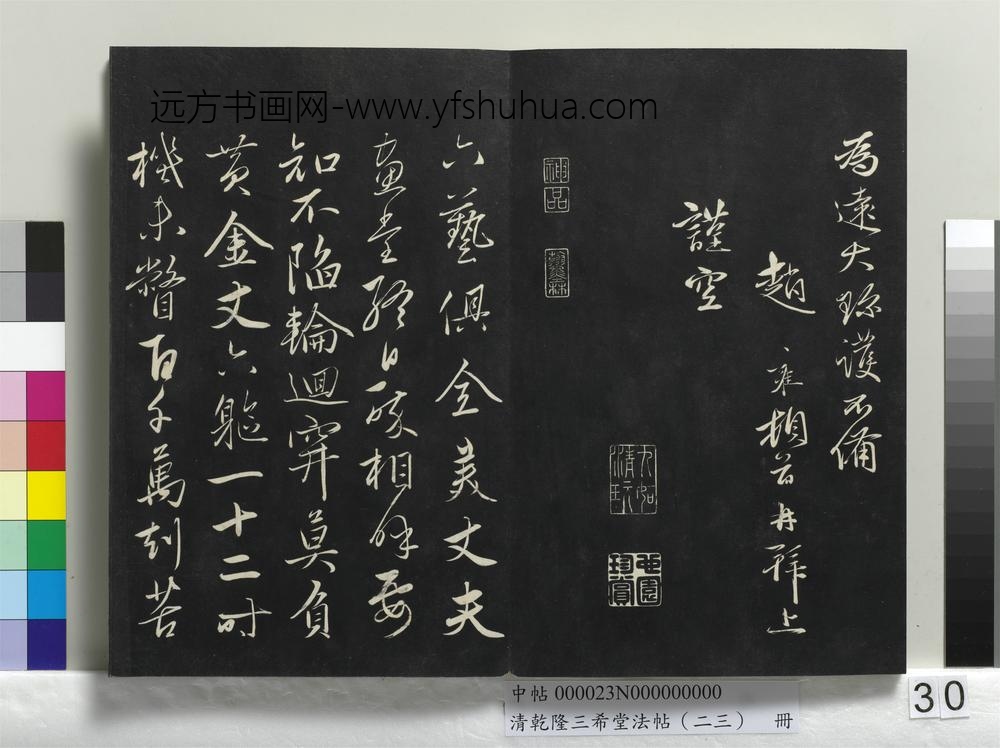 远方书画网-www.yfshuhua.com
為遠大珎護不備
趙 雍頓首再拜上
謹空
神品
九如清玩
六藝俱全美丈夫
畫堂終日咳相
知不陷輪迴穽莫負
黄金丈六軀一十二时
機未瞥百千萬刻苦
中帖 000023N000000000
清乾隆三希堂法帖（二三） 冊
30